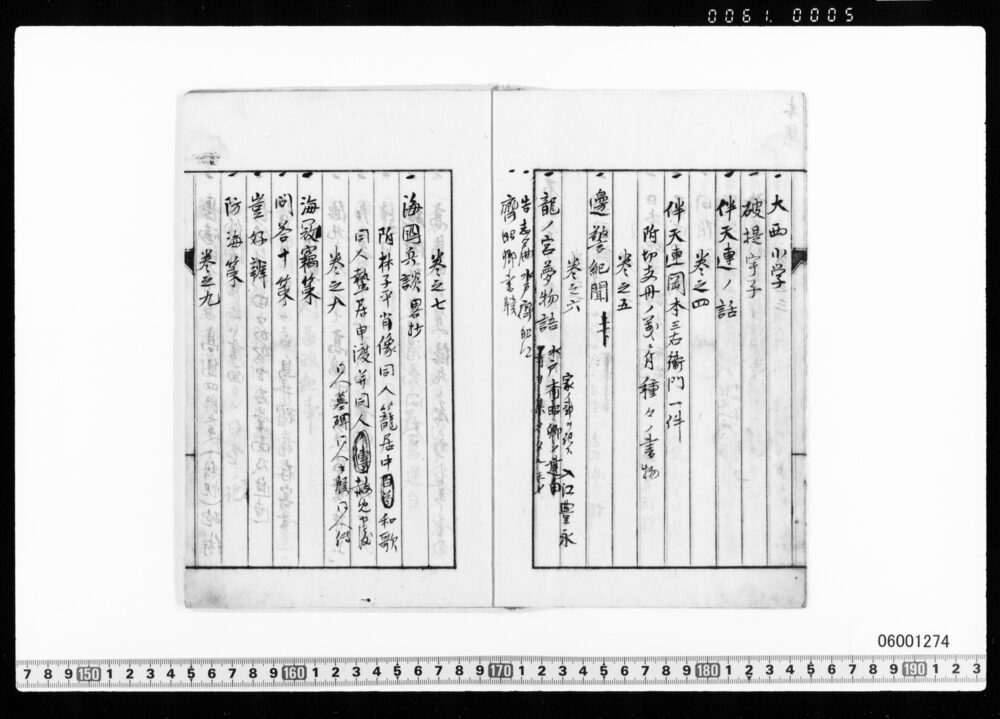 0061.0005
一 大西小学
一 破提宇子
一 伴天連ノ話
巻之四
一 伴天連岡本三右衛門一件
附切支丹ノ宗月種々ノ書物
巻之五
一 邊警紀聞
巻之六
一 龍ノ宮夢物語
入江豊永
齊昭卿書牘
巻之七
一 海國兵談 畧抄
附林子平肖像同人籠居中和歌
同人蟄居申渡并同人赦免申渡
同人墓碑
巻之八
一 海寇竊策
一 問答十策
一 豈好辨
一 防海策
巻之九
06001274
7 8 9 150 1 2 3 4 5 6 7 8 9 160 1 2 3 4 5 6 7 8 9 170 1 2 3 4 5 6 7 8 9 180 1 2 3 4 5 6 7 8 9 190 1 2 3